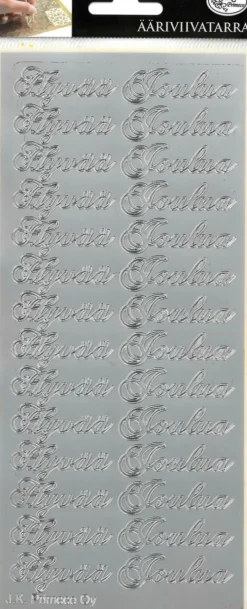 Primeco
ÄÄRIVIIVATARRA
Hyvää Joulua
Hyvää Joulua
Hyvää Joulua
Hyvää Joulua
Hyvää Joulua
Hyvää Joulua
Hyvää Joulua
Hyvää Joulua
Hyvää Joulua
Hyvää Joulua
Hyvää Joulua
Hyvää Joulua
Hyvää Joulua
Hyvää Joulua
J.K. Primeco Oy